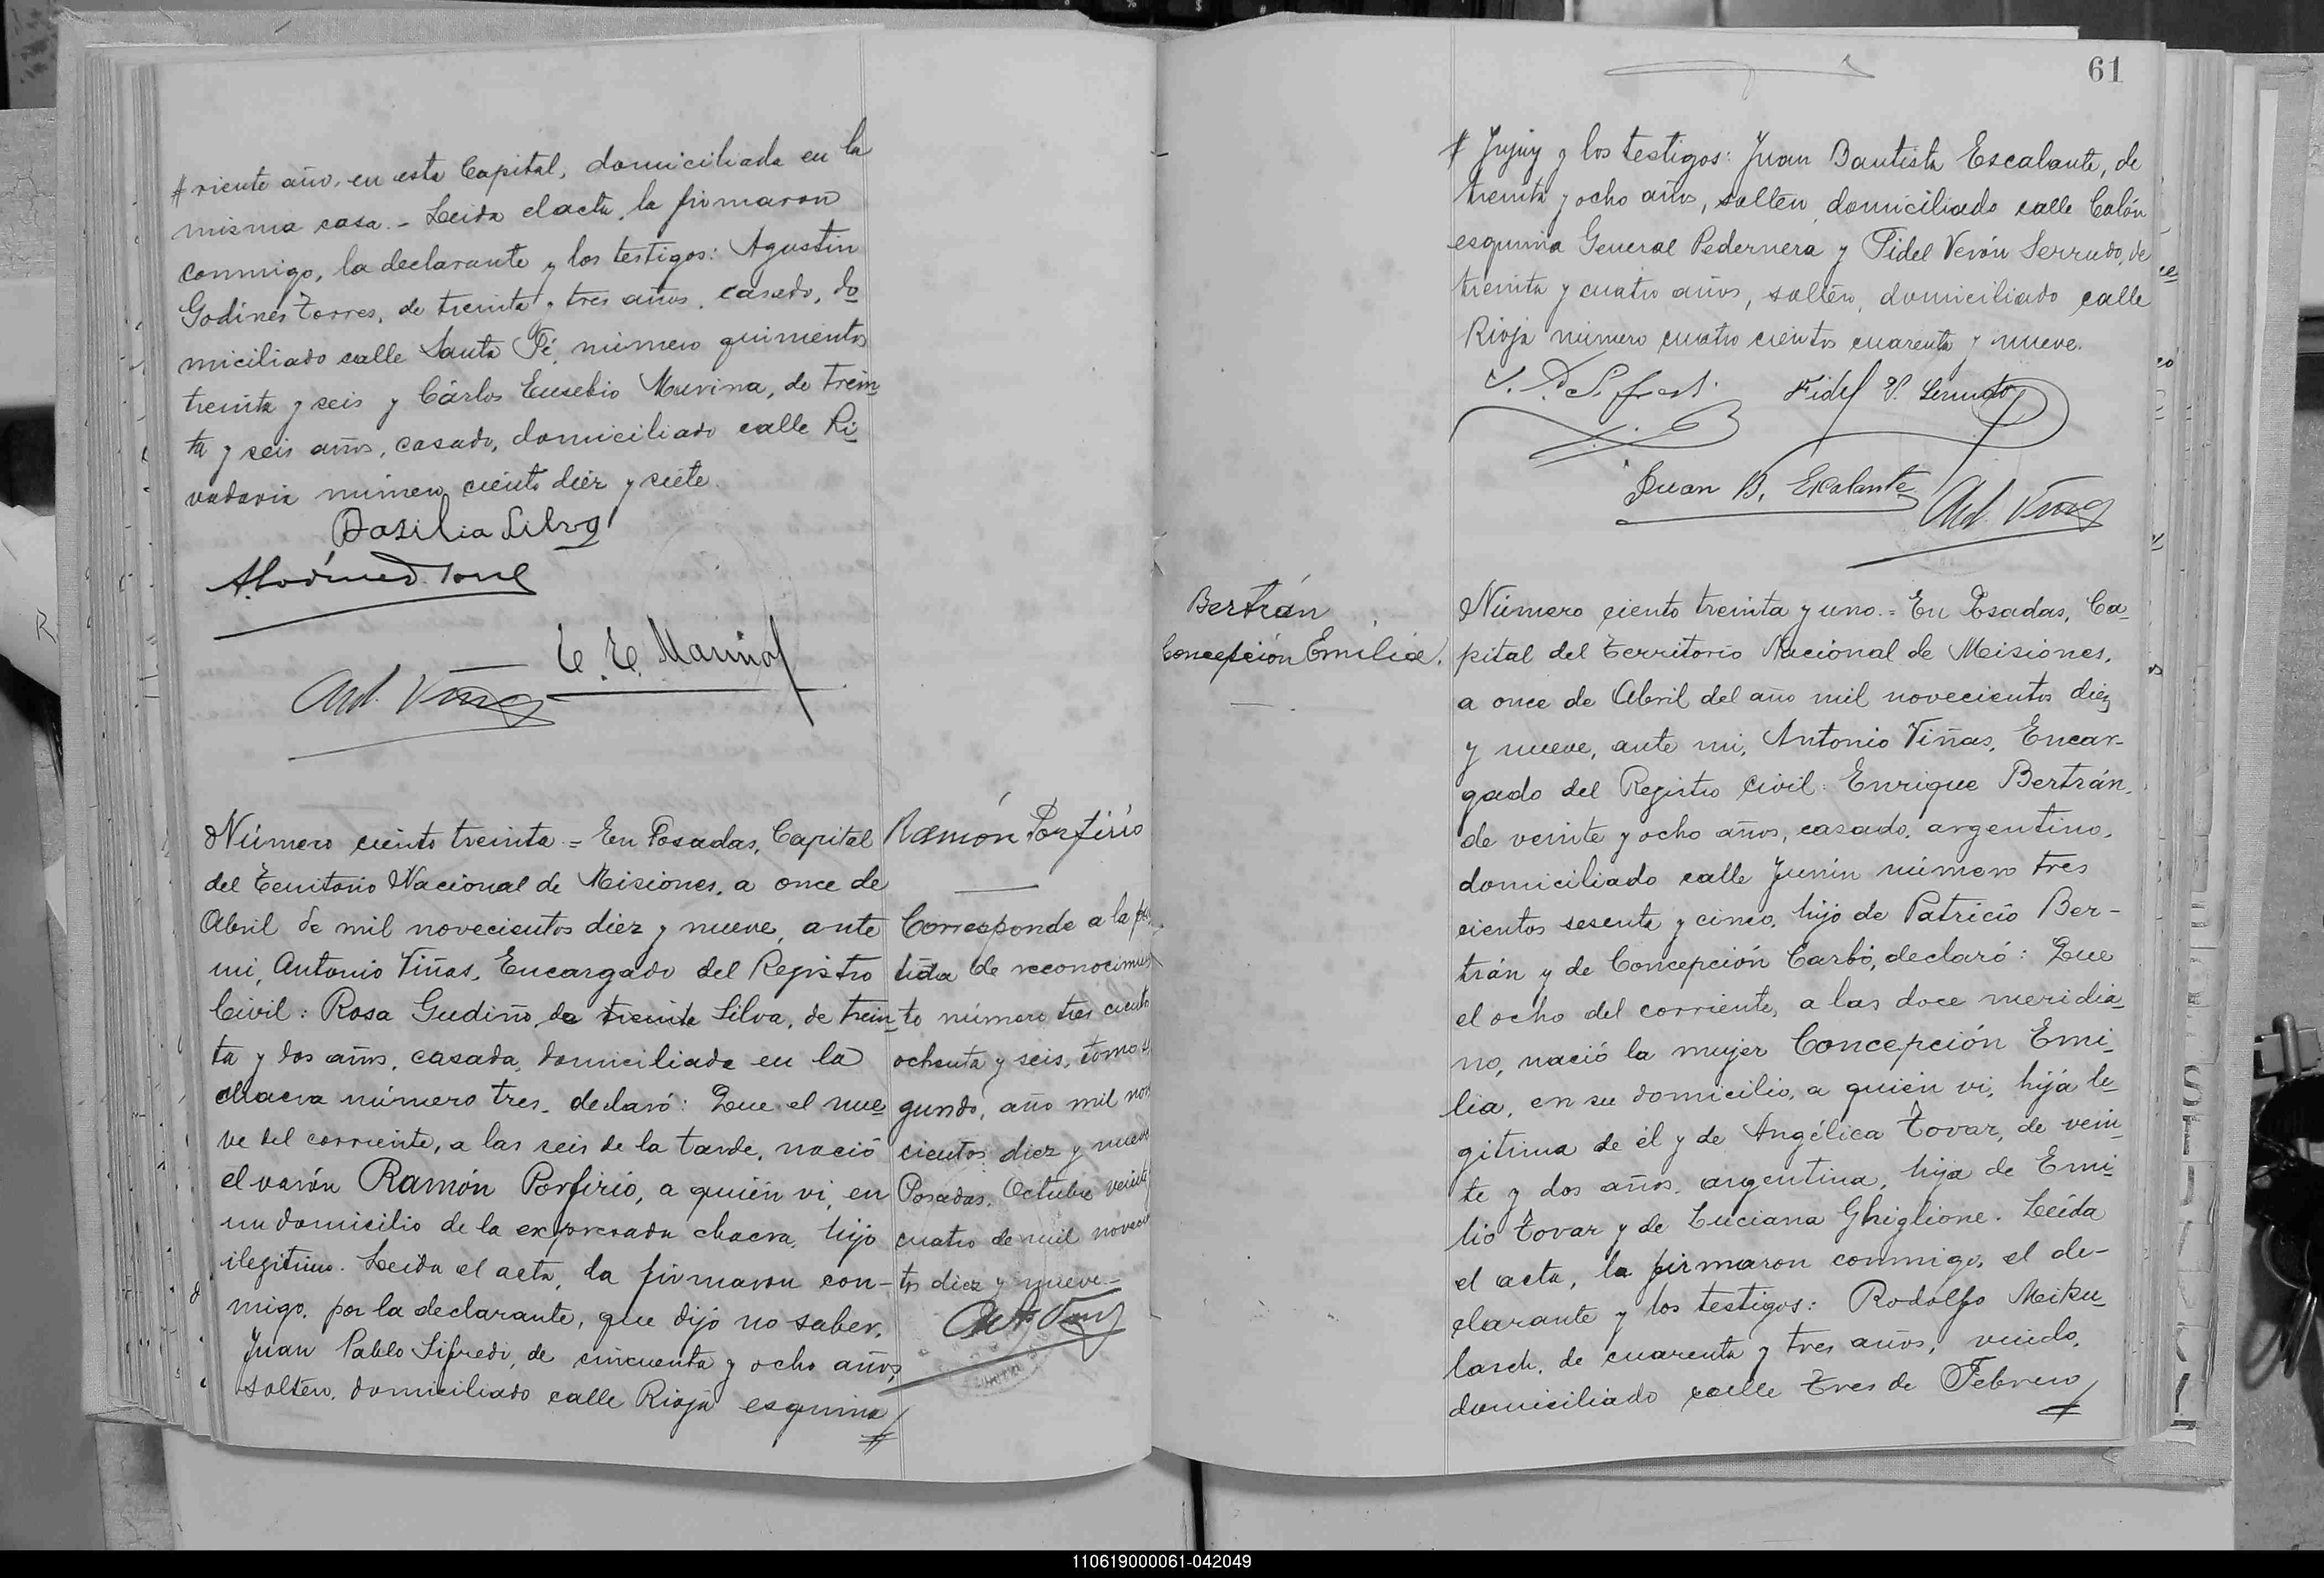 riente año, en esta Capital, domiciliada en la
misma casa. - Leida el acta, la firmaron
conmigo, la declarante y los testigos: Agustin
Godines Torres, de treinta y tres años, casado, do
miciliado calle Santa Fé, número quinientos
treinta y seis y Cárlos Eusebio, de trein
ta y seis años, casado, domiciliado calle Ri
vadavia número ciento diez y siete.
Basilia Silva
Número ciento treinta = En Posadas, Capital
del Territorio Nacional de Misiones, a once de
Abril de mil novecientos diez y nueve, ante
mi, Antonio Viñas, Encargado del Registro
Civil: Rosa Gudiño de treinta Silva, de trein
ta y dos años, casada, domiciliada en la
chacra número tres, declaró: Que el nue
ve del corriente, a las seis de la tarde, nació
el varón Ramón Porfirio, a quién vi, en
un domicilio de la expresada chacra, hijo
ilegitimo. Leida el acta, la firmaron con-
migo, por la declarante, que dijo no saber,
Juan Pablo Sifredi, de cincuenta y ocho años,
soltero, domiciliado calle Rioja esquina
Ramón Porfirio
Corresponde a la
tida de reconocimien
to número tres ciento
ochenta y seis, tomo
gundo, año mil nov
cientos diez y nueve
Posadas, Octubre veinte
cuatro de mil novecien
tos diez y nueve -
61
Jujuy y los testigos: Juan Bautista Escalante, de
treinta y ocho años, soltero, domiciliado calle Colón
esquina General Pedernera y Fidel Verón Serrudo, de
treinta y cuatro años, soltero, domiciliado calle
Rioja número cuatro cientos cuarenta y nueve.
Fidel V. Serrudo
Juan B. Escalante
Bertrán
Concepción Emilia.
Número ciento treinta y uno. = En Posadas, Ca-
pital del Territorio Nacional de Misiones,
a once de Abril del año mil novecientos diez
y nueve, ante mi, Antonio Viñas, Encar-
gado del Registro Civil: Enrique Bertrán,
de veinte y ocho años, casado, argentino,
domiciliado calle Junin número tres
cientos sesenta y cinco, hijo de Patricio Ber-
trán y de Concepción Carbó, declaró: Que
el ocho del corriente, a las doce meridia
no, nació la mujer Concepción Emi
lia, en su domicilio, a quién vi, hija le
gitima de él y de Angélica Tovar, de vein
te y dos años, argentina, hija de Emi
lio Tovar y de Luciana Ghiglione. Leida
el acta, la firmaron conmigo, el de-
clarante y los testigos: Rodolfo Miku
lasch, de cuarenta y tres años, viudo,
domiciliado calle Tres de Febrero
110619000061-042049